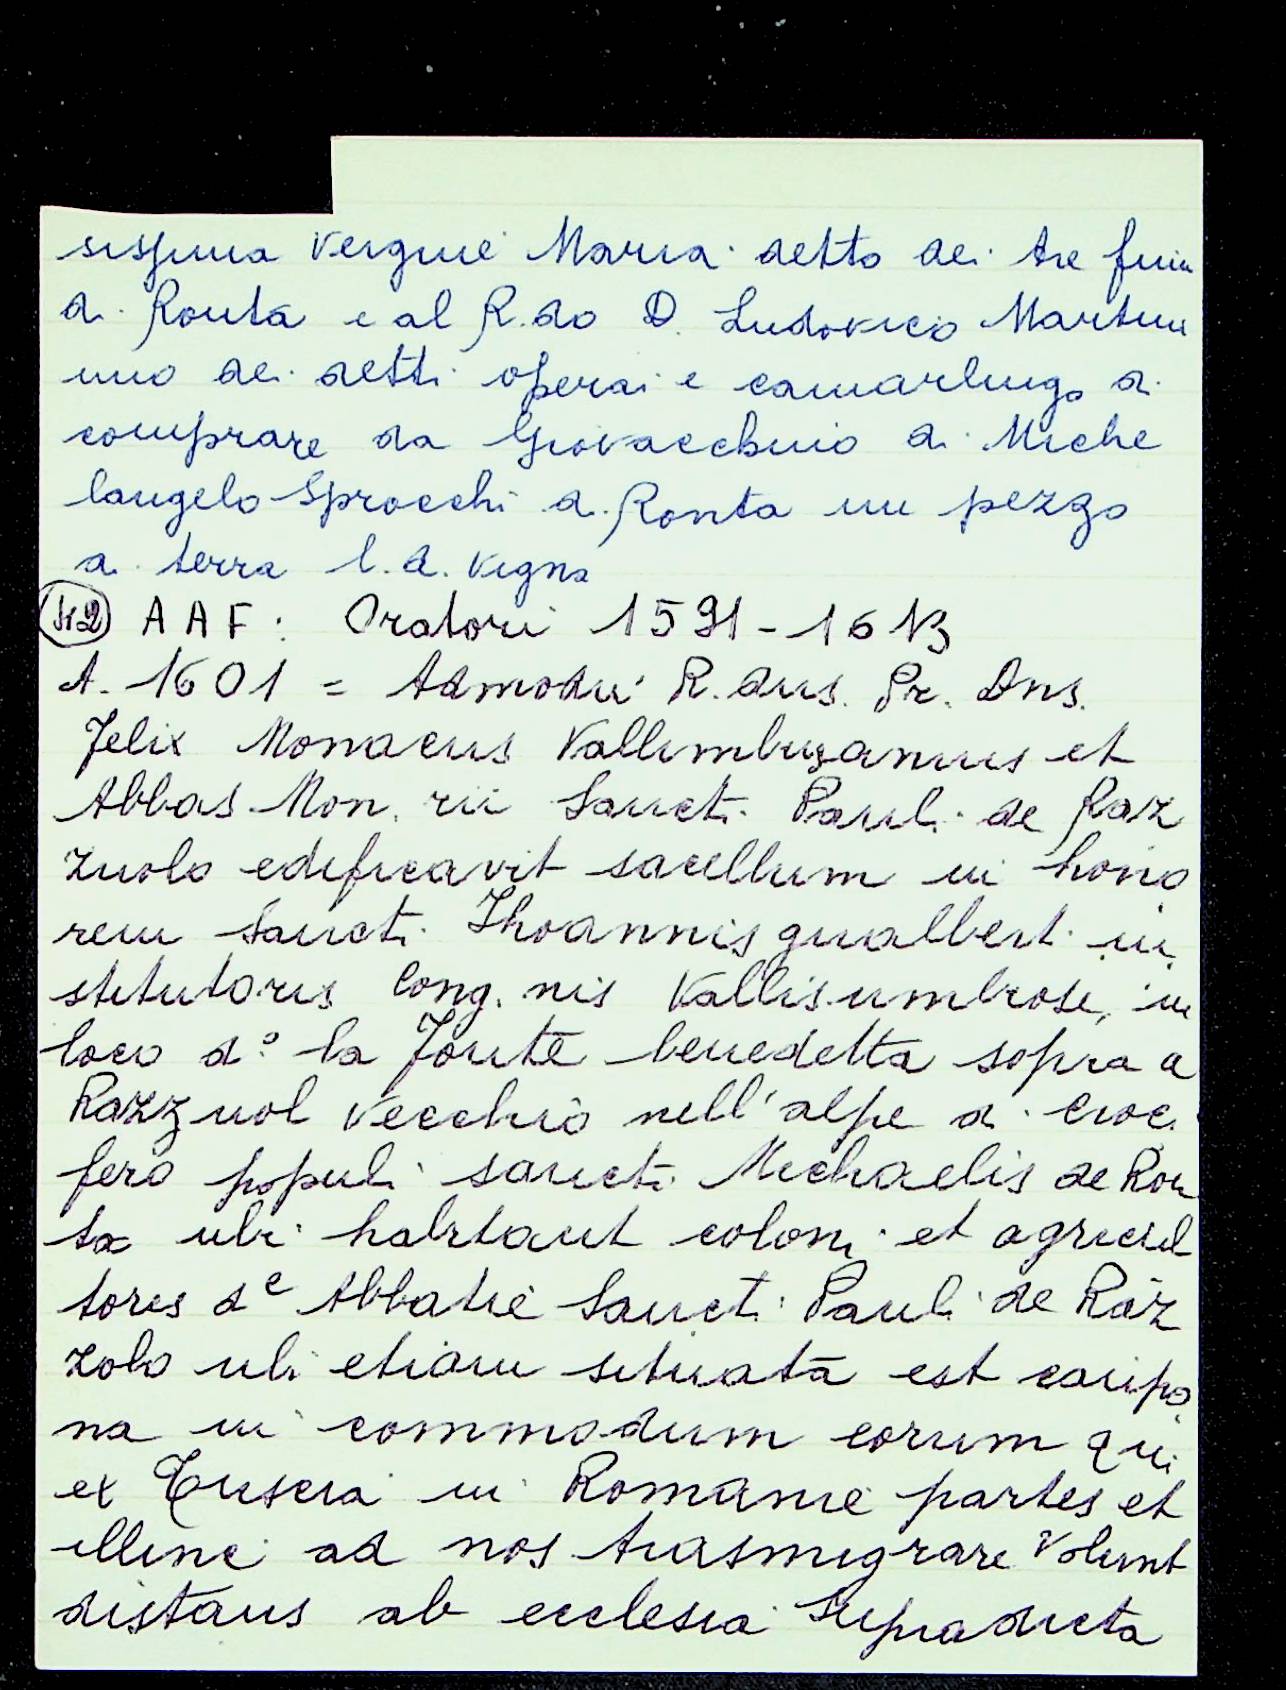 sissima Vergine Maria detto dei tre fiumi
di Ronta e al R.do D. Ludovico Martini
uno dei detti operai e camarlingo di
comprare da Giovacchino di Miche
langelo Sprocchi di Ronta un pezzo
di terra l.d. vigna
42 AAF: Oratori 1591-1613
A. 1601 = Admodu R.dus. Pr. Dns.
Felix Monacus Vallumbrosanus et
Abbas Mon.rii Sancti Pauli de Raz
zuolo edificavit sacellum in hono
rem Sancti Jhoannis gualberti in
stitutoris Cong.nis Vallisumbrose, in
loco d.º la Fonte benedetta sopra a
Razzuol Vecchio nell'alpe di Croci
fero populi sancti Michaelis de Ron
ta ubi habitant coloni et agricul
tores de Abbatie Sancti Pauli de Raz
zolo ubi etiam situata est caupo
na in commodum eorum qui
ex Tuscia in Romanie partes et
illinc ad nos trasmigrare volunt
distans ab ecclesia supradicta